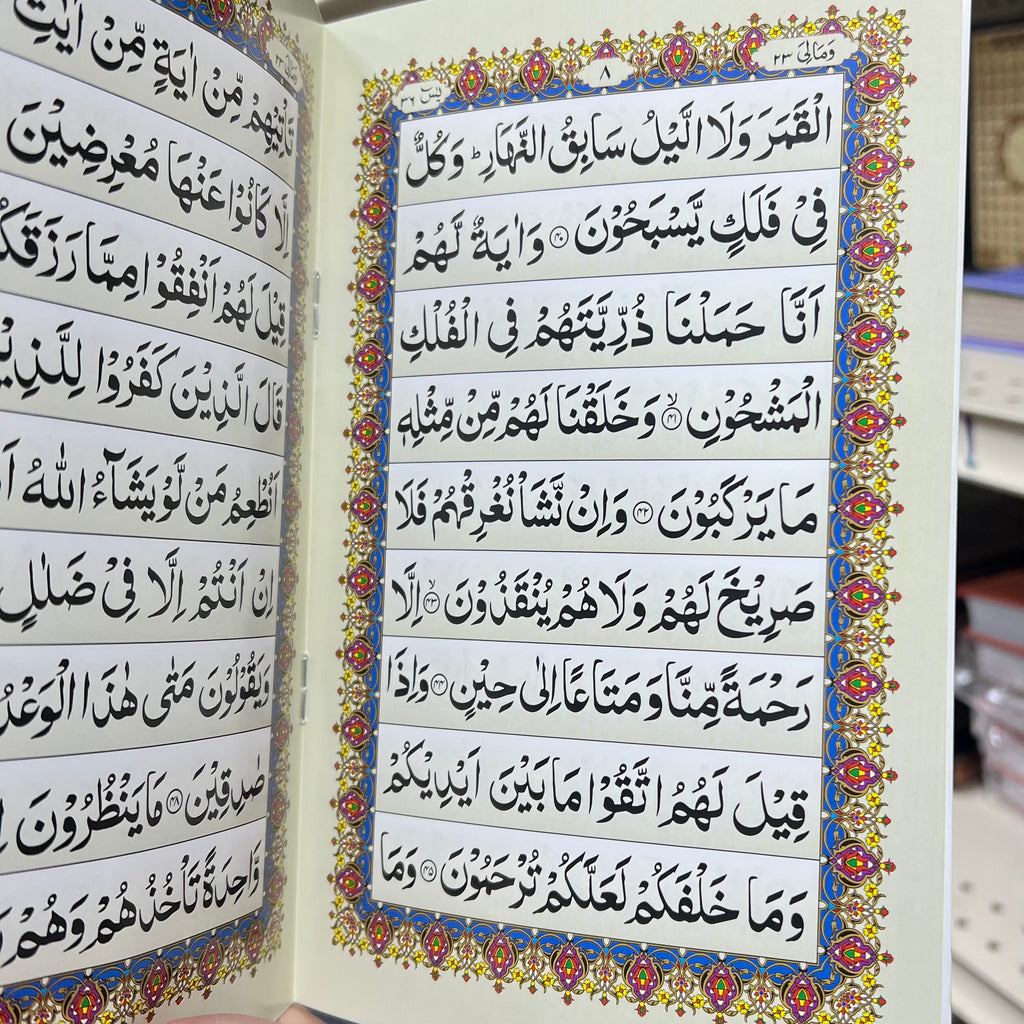 وَمَالِیَ ٢٣
٨
يٰسٓ ٣٦
الْقَمَرَ وَلَا الَّيْلُ سَابِقُ النَّهَارِ ؕ وَكُلٌّ
فِىْ فَلَكٍ يَّسْبَحُوْنَ ۝۴۰ وَاٰيَةٌ لَّهُمْ
اَنَّا حَمَلْنَا ذُرِّيَّتَهُمْ فِى الْفُلْكِ
الْمَشْحُوْنِ ۝۴۱ۙ وَخَلَقْنَا لَهُمْ مِّنْ مِّثْلِهٖ
مَا يَرْكَبُوْنَ ۝۴۲ وَاِنْ نَّشَاْ نُغْرِقْهُمْ فَلَا
صَرِيْخَ لَهُمْ وَلَا هُمْ يُنْقَذُوْنَ ۝۴۳ۙ اِلَّا
رَحْمَةً مِّنَّا وَمَتَاعًا اِلٰى حِيْنٍ ۝۴۴ وَاِذَا
قِيْلَ لَهُمُ اتَّقُوْا مَا بَيْنَ اَيْدِيْكُمْ
وَمَا خَلْفَكُمْ لَعَلَّكُمْ تُرْحَمُوْنَ ۝۴۵ وَمَا
تَاْتِيْهِمْ مِّنْ اٰيَةٍ مِّنْ اٰيٰتِ
اِلَّا كَانُوْا عَنْهَا مُعْرِضِيْنَ
قِيْلَ لَهُمْ اَنْفِقُوْا مِمَّا رَزَقَكُ
قَالَ الَّذِيْنَ كَفَرُوْا لِلَّذِيْنَ
اَنُطْعِمُ مَنْ لَّوْ يَشَآءُ اللّٰهُ
اِنْ اَنْتُمْ اِلَّا فِىْ ضَلٰلٍ
وَيَقُوْلُوْنَ مَتٰى هٰذَا الْوَعْدُ
صٰدِقِيْنَ ۝۴۸ مَا يَنْظُرُوْنَ
وَّاحِدَةً تَاْخُذُهُمْ وَهُمْ